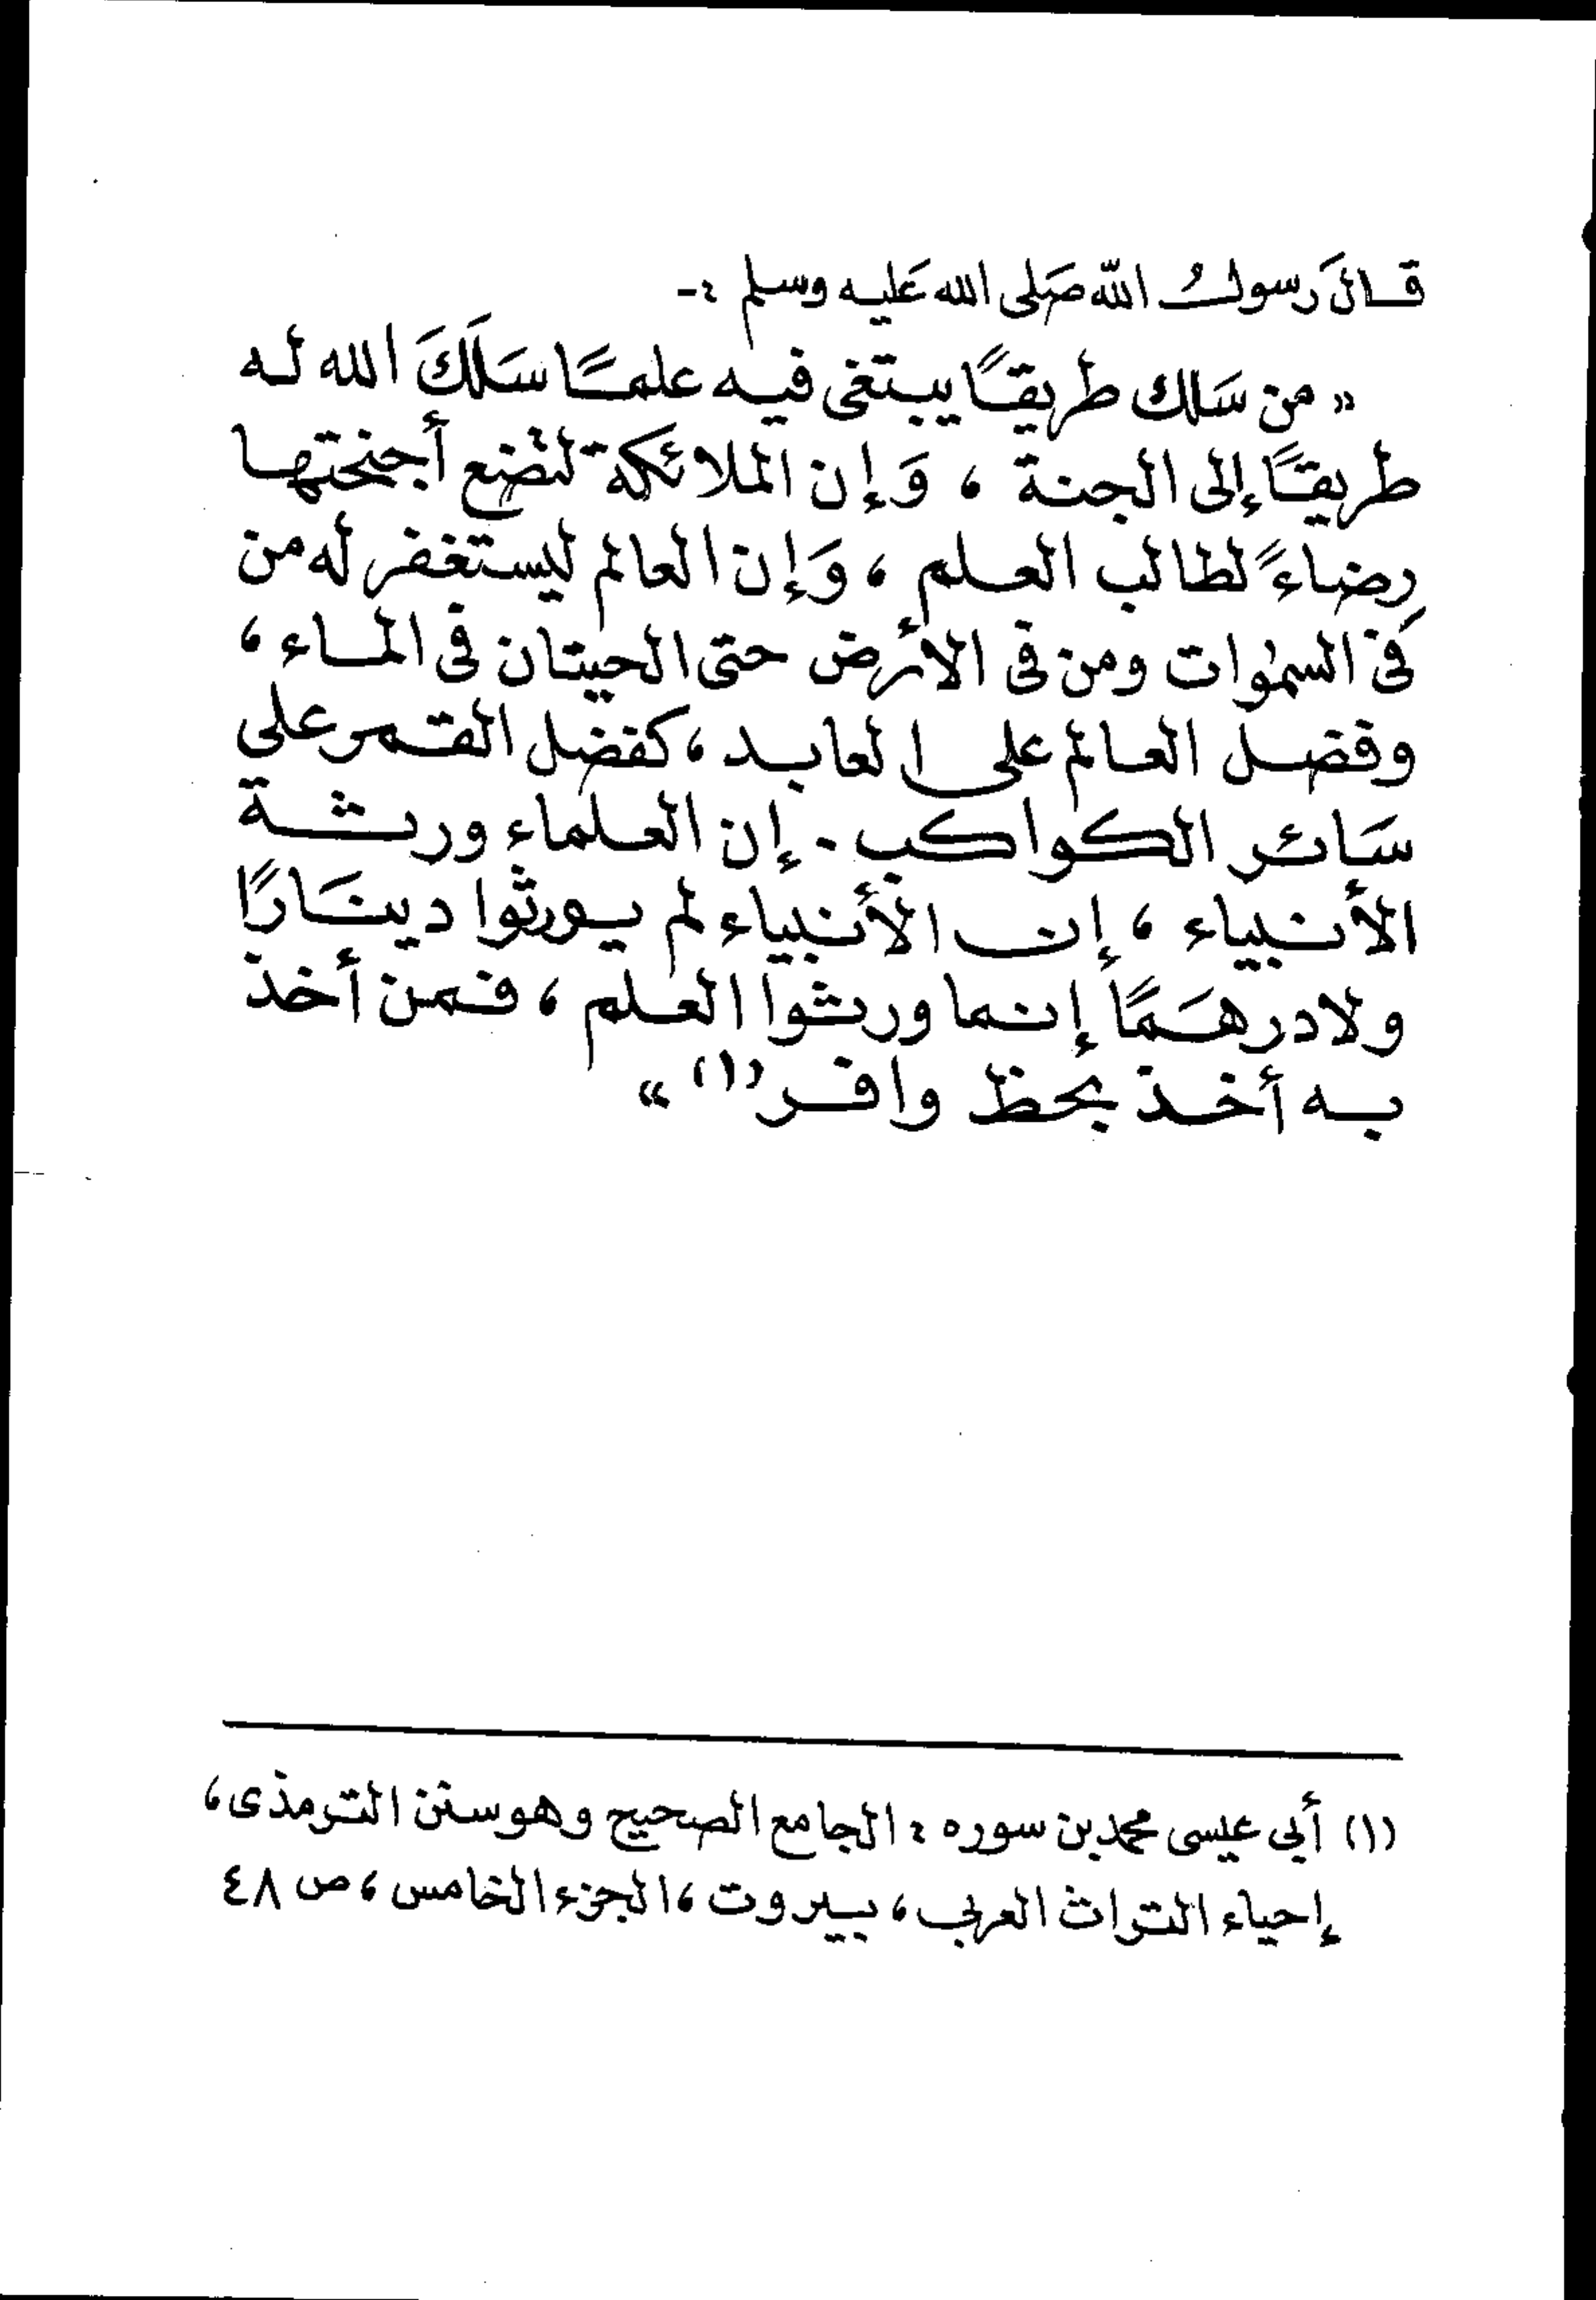 قالَ رسولُ اللّه صَلى الله عَليه وسلم :-
« من سَلك طريقاً يبتغى فيه علمًا سَلَكَ الله له
طريقاً إلى الجنة ، وَإن الملائكة لتضع أجنحتها
رِضاءً لطالب العلم ، وَإن العالم ليستغفر له من
فى السمٰوات ومن فى الأرض حتى الحيتان فى الماء ،
وفضل العالم على العابد ، كفضل القمر على
سَائر الكواكب . إن العلماء ورثة
الأنبياء ، إن الأنبياء لم يورثوا دينَارًا
ولا درهَمًا إنما ورثوا العلم ، فمن أخذ
به أخذ بحظ وافر (١) »
(١) أبى عيسى محمد بن سوره : الجامع الصحيح وهو سنن الترمذى ،
إحياء التراث العربى ، بيروت ، الجزء الخامس ، ص ٤٨